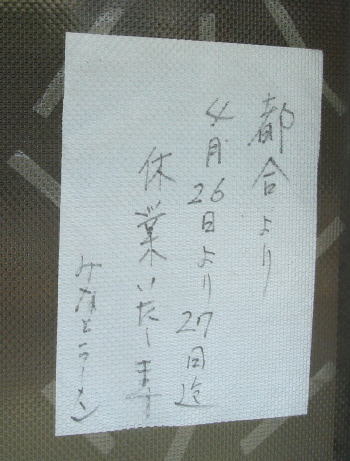 都合より
4月26日より27日迄
休業いたします
みなとラーメン